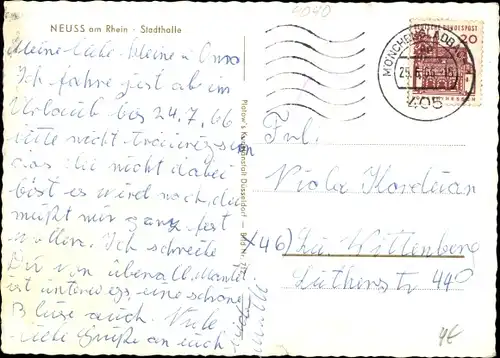 NEUSS am Rhein · Stadthalle
Meine liebe kleine u Oma
Ich fahre jetzt ab im
Urlaub bis 24.7.66
bitte nicht traurig sein
das du nicht dabei
bist es wird noch, du
mußt nur ganz fest
wollen. Ich schreibe
Dir von überall Mantel
ist unterwegs eine schöne
Bluse auch. Viele
viele Grüße an euch
Düsseldorf
MÖNCHENGLADBACH
405
DEUTSCHE BUNDESPOST
20
Frl.
Viola Kordian
(46) Lu. Wittenberg
Lutherstr 44
4040
4€